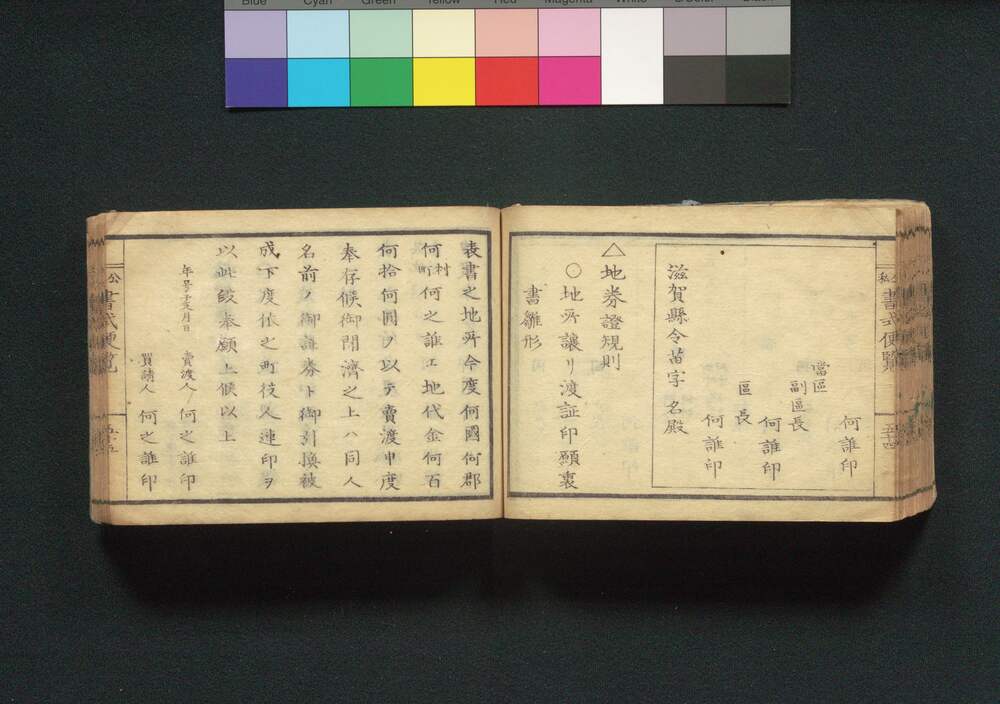 Blue Cyan Green Yellow Red Magenta White 3/Color Black
何誰印
當區
副區長
何誰印
區長
何誰印
滋賀縣令苗字名殿
△地券證規則
○地所讓リ渡証印願裏
書雛形
表書之地所今度何國何郡
何村町何之誰エ地代金何百
何拾何圓ヲ以テ賣渡申度
奉存候御聞濟之上ハ同人
名前ノ御證券ト御引換被
成下度依之町役人連印ヲ
以此段奉願上候以上
年号干支月日
賣渡人 何之誰印
買請人 何之誰印
書式便覧
五十四
公
書式便覧
五十五